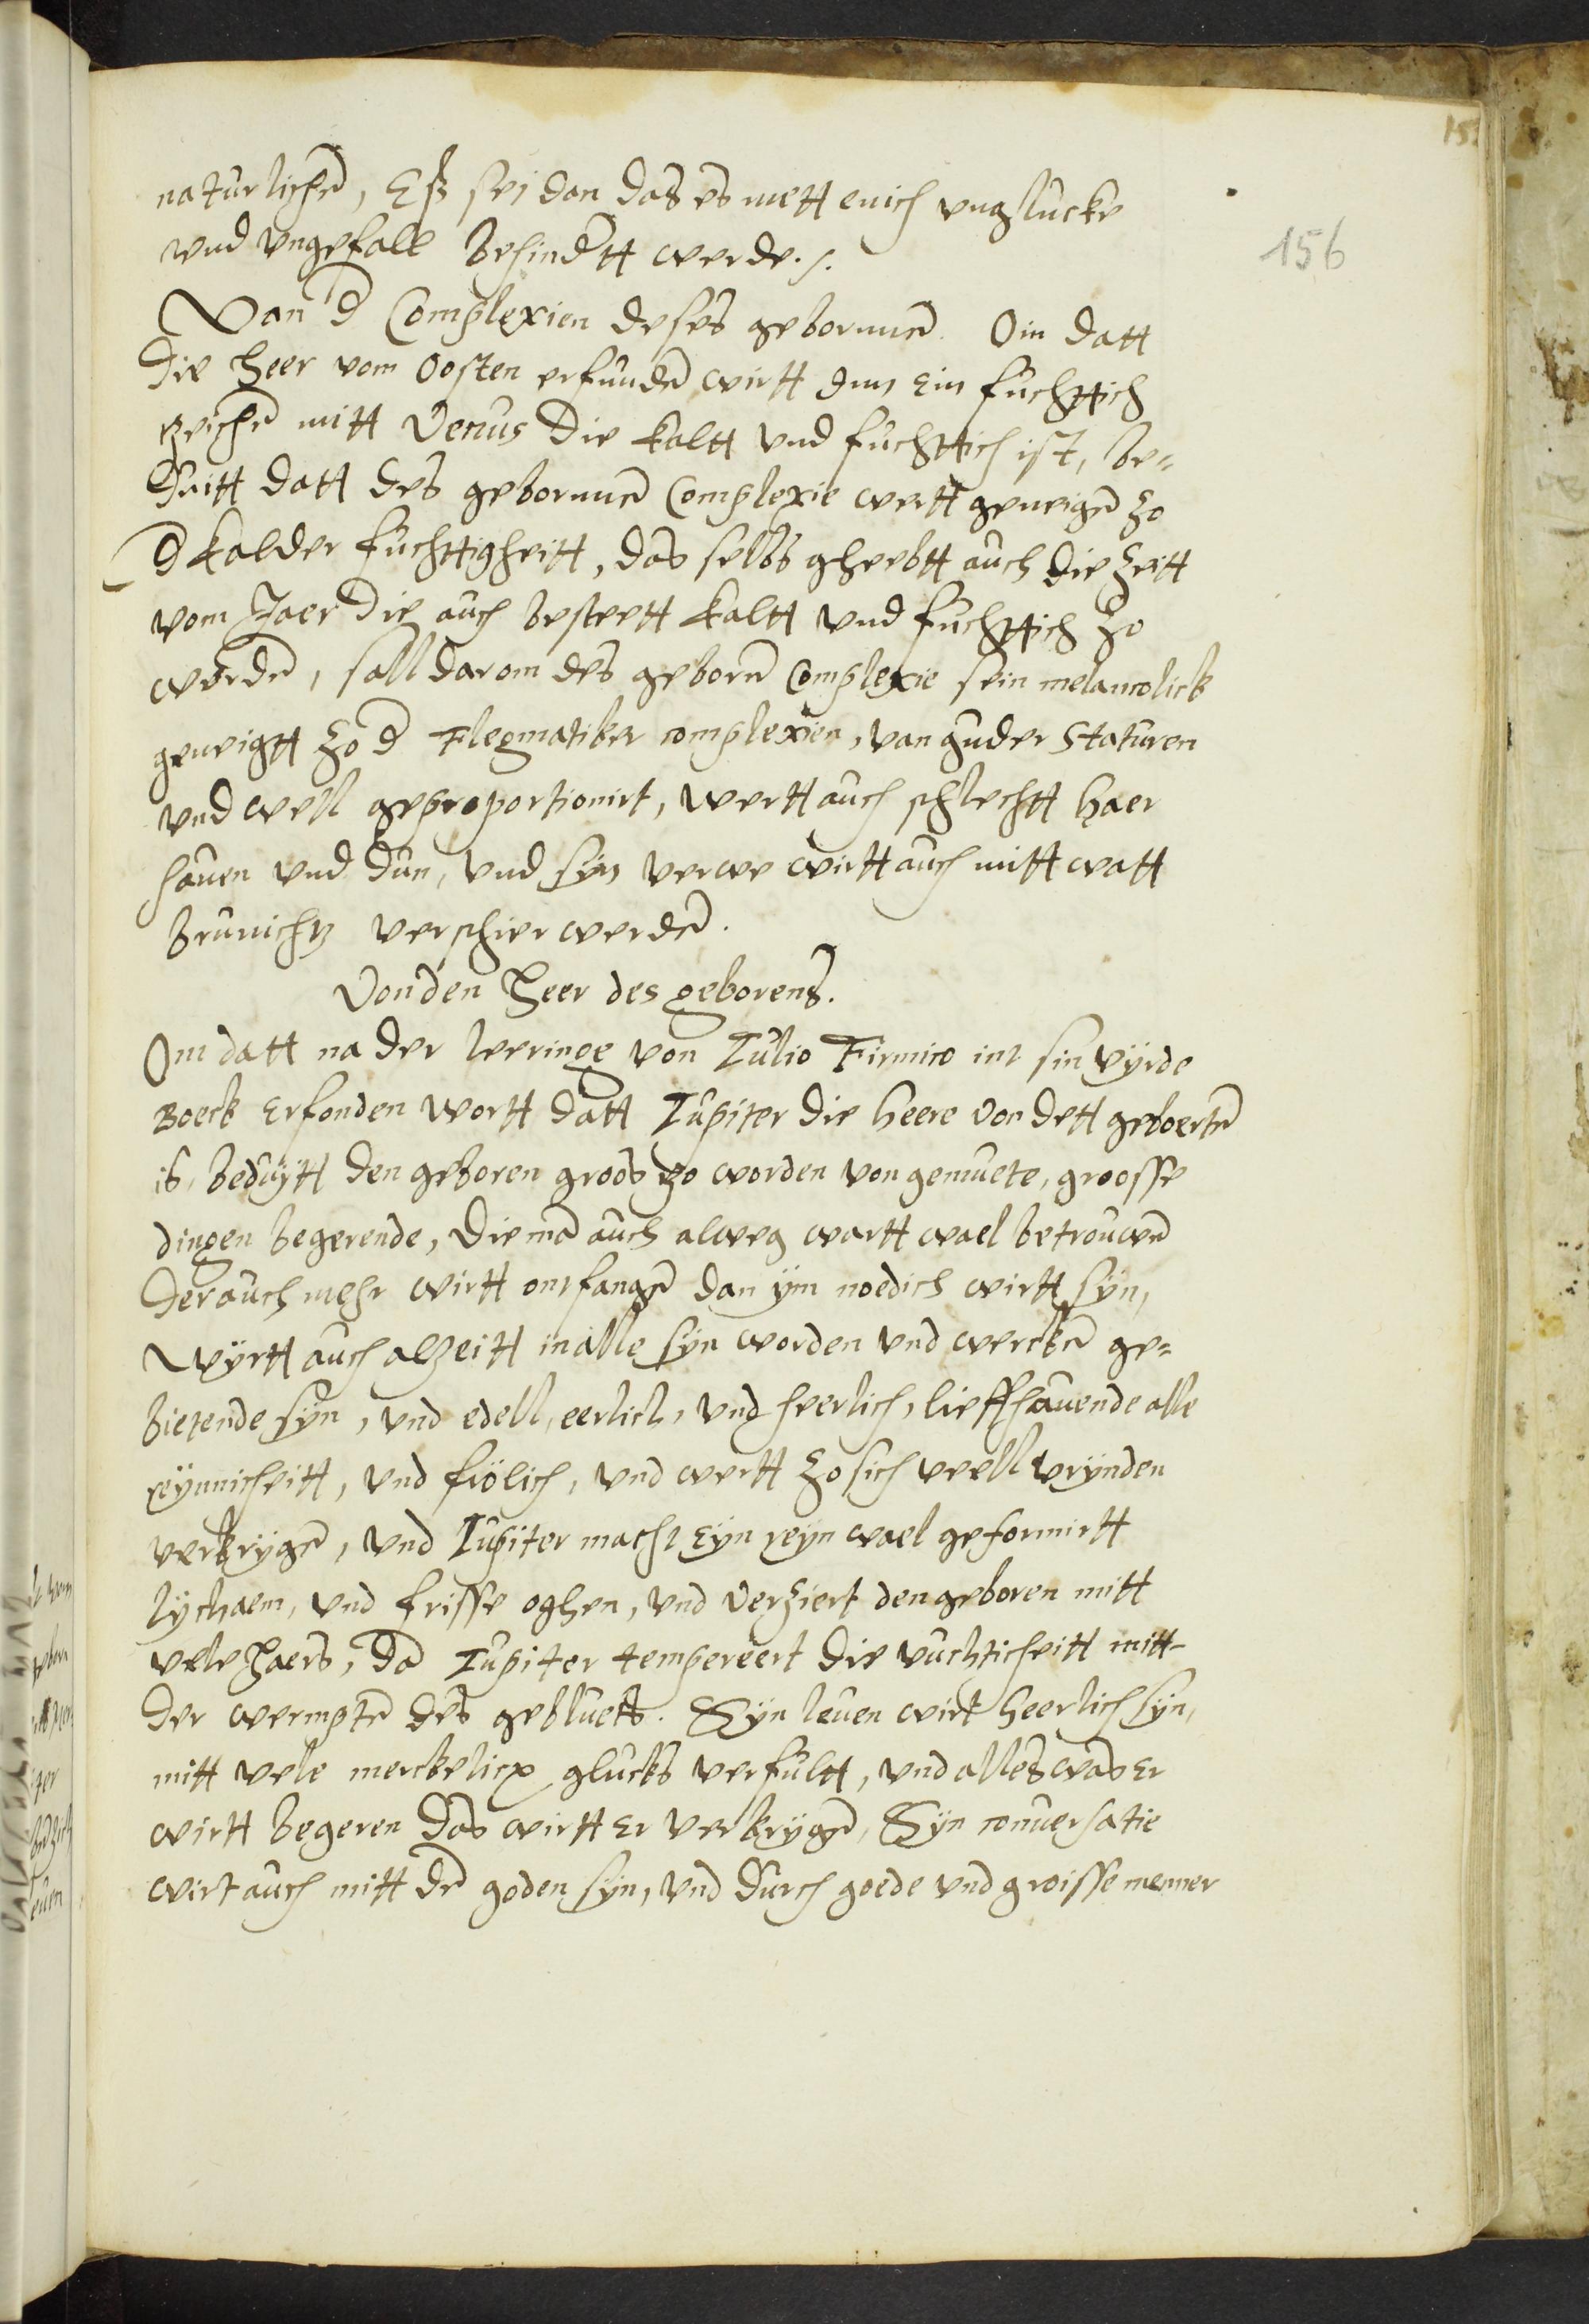 15
156
naturlichen, Eß sei dan das es mett enich unglucke
und ungefall behindertt werde ./.
Van der Complexien deses gebornnen. Om datt
die heer vom Oosten erfunden wirtt Inn Ein fuchttich
zeichen mitt Venus die kaltt und fuchttich ist, be-
duitt datt des gebornnen Complexie wertt geneigen zo
der kalder fuchttigheitt, das selbs gheebtt auch die Zeitt
vom Jaer die auch besteett kaltt und fuchttich zo
werden, sall darom des geboren Complexie sein melancolick
geneigtt zo der Flegmatiker complexien, van guder Staturen
und well geproportionirt, wertt auch schlechtt haer
hauen und dun, und syn verwe wirtt auch mitt watt
brunichtz verschier werden.
Von den heer des geborens.
Om datt na der leeringe von Iulio Firmico int sin vyrde
Boeck Erfonden wortt datt Iupiter die heere von dett geboerten
is, beduytt den geboren groos zo worden von gemuete, groosse
dingen begerende, die men auch alweg wartt wael betrouwen
der auch mehr wirtt ontfangen dan ym noedich wirtt syn,
wyrtt auch alzeitt in alle syn worden und wercken ge-
bietende syn, und edell, eerlich, und heerlich, lieffhauende alle
reynnicheitt, und frölich, und wertt zo sich veell vrynden
verkrygen, und Iupiter macht Eyn reyn wael geformirtt
lychaem, und frisse oghen, und verziert den geboren mitt
vele haers, da Iupiter tempereert die vuchticheitt mitt
der wermpten des gebluets. Syn leuen wirt heerlich syn,
mitt vele merckelicx glucks verfultt, und alles was Er
wirtt begeren das wirtt Er verkrygen, Syn conuersatie
wirt auch mitt den goden syn, und durch goede und groisse menner